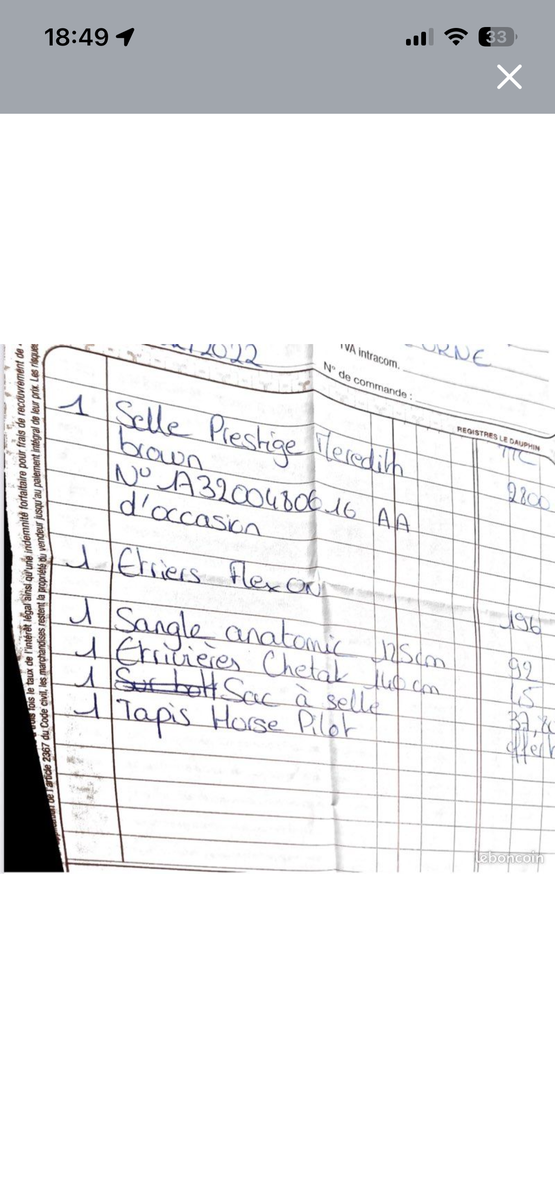 18:49
33
2022
TVA intracom.
URNE
N° de commande :
REGISTRES LE DAUPHIN
TTC
1 Selle Prestige Meredith 2200
brown
N° A32004806.16 AA
d'occasion
1 Etriers Flex ON 196
1 Sangle anatomic 125cm 92
1 Etrivières Chetak 140 cm 15
1 Sur bott Sac à selle 37,
1 Tapis Horse Pilot offert
fois le taux de l'intérêt légal ainsi qu'une indemnité forfaitaire pour frais de recouvrement de
de l'article 2367 du Code civil, les marchandises restent la propriété du vendeur jusqu'au paiement intégral de leur prix. Les risques
leboncoin